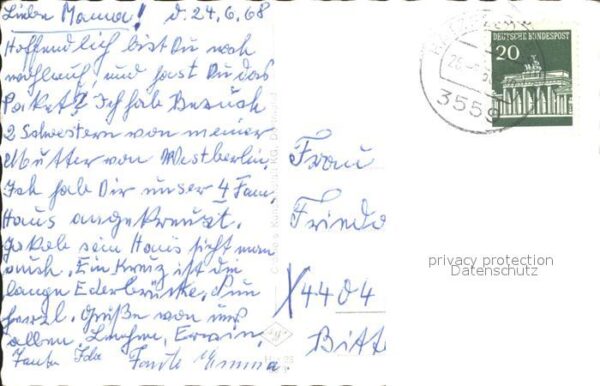 Lieben Mama! d. 24.6.68
Hoffendlich bist Du noch
und hast Du das
Paket? Ich hab Besuch
2 Schwestern von meiner
Mutter von Westberlin.
Ich hab Dir unser 4 Fam.
Haus angekreuzt.
Jakob sein Haus sieht man
auch. Ein Kreuz ist die
lange Ederbrücke. Nun
herzl. Grüße von uns
allen. Erwin,
Tante Ida Tante Emma.
Frau
Friedo
X4404
Bitt
DEUTSCHE BUNDESPOST
20
3559
privacy protection
Datenschutz